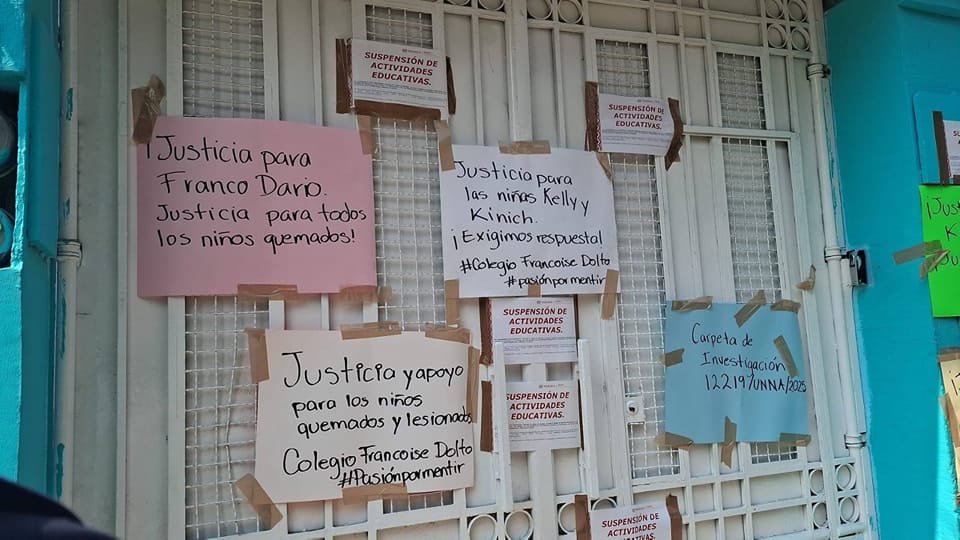 SUSPENSIÓN DE
ACTIVIDADES
EDUCATIVAS.
SUSPENSIÓN DE
ACTIVIDADES
EDUCATIVAS.
¡Justicia para
Franco Dario.
Justicia para todos
los niños quemados!
Justicia para
las niñas Kelly y
Kinich.
¡Exigimos respuesta!
#Colegio Francoise Dolto
#pasiónpormentir
¡Jus
K
SUSPENSIÓN DE
ACTIVIDADES
EDUCATIVAS.
Justicia y apoyo
para los niños
quemados y lesionados
Colegio Francoise Dolto
#Pasiónpormentir
Carpeta de
Investigación
12219/UNNA/2025
SUSPENSIÓN DE
ACTIVIDADES
EDUCATIVAS.
SUSPENSIÓN DE
ACTIVIDADES
EDUCATIVAS.